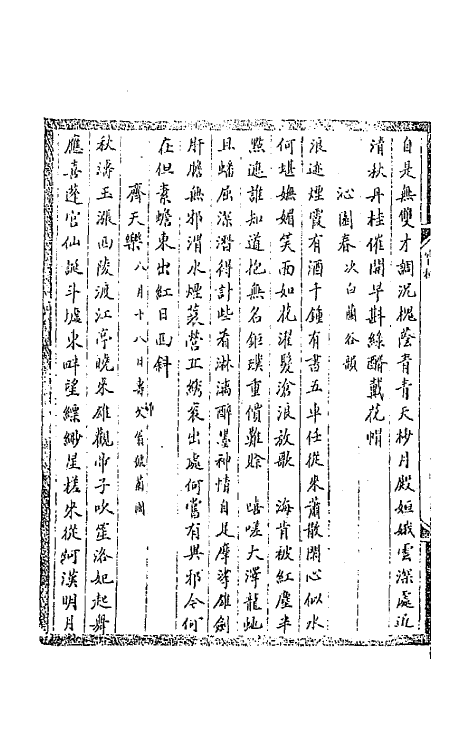 自是無雙才調況槐蔭青青天杪月殿姮娥雲深處近
清秋丹桂催開早斟綠醑戴花帽
沁園春次白蘭谷韻
浪迹煙霞有酒千鍾有書五車任從來蕭散閑心似水
何堪嫵媚笑面如花濯髮滄浪放歌 海肯被紅塵半
點遮誰知道抱無名鉅璞重價難賒 嘻嗟大澤龍虵
且蟠屈深潛得計些看淋漓醉墨神情自足摩挲雄劍
肝膽無邪渭水煙蓑營丘繡袞出處何嘗有異邪今何
在但素蟾東出紅日西斜
齊天樂八月十八日壽 翁娛蘭國
秋濤玉漲西陵渡江亭曉來雄觀帝子吹笙洛妃起舞
應喜蓬宮仙誕斗墟東畔望縹緲星槎來從河漢明月